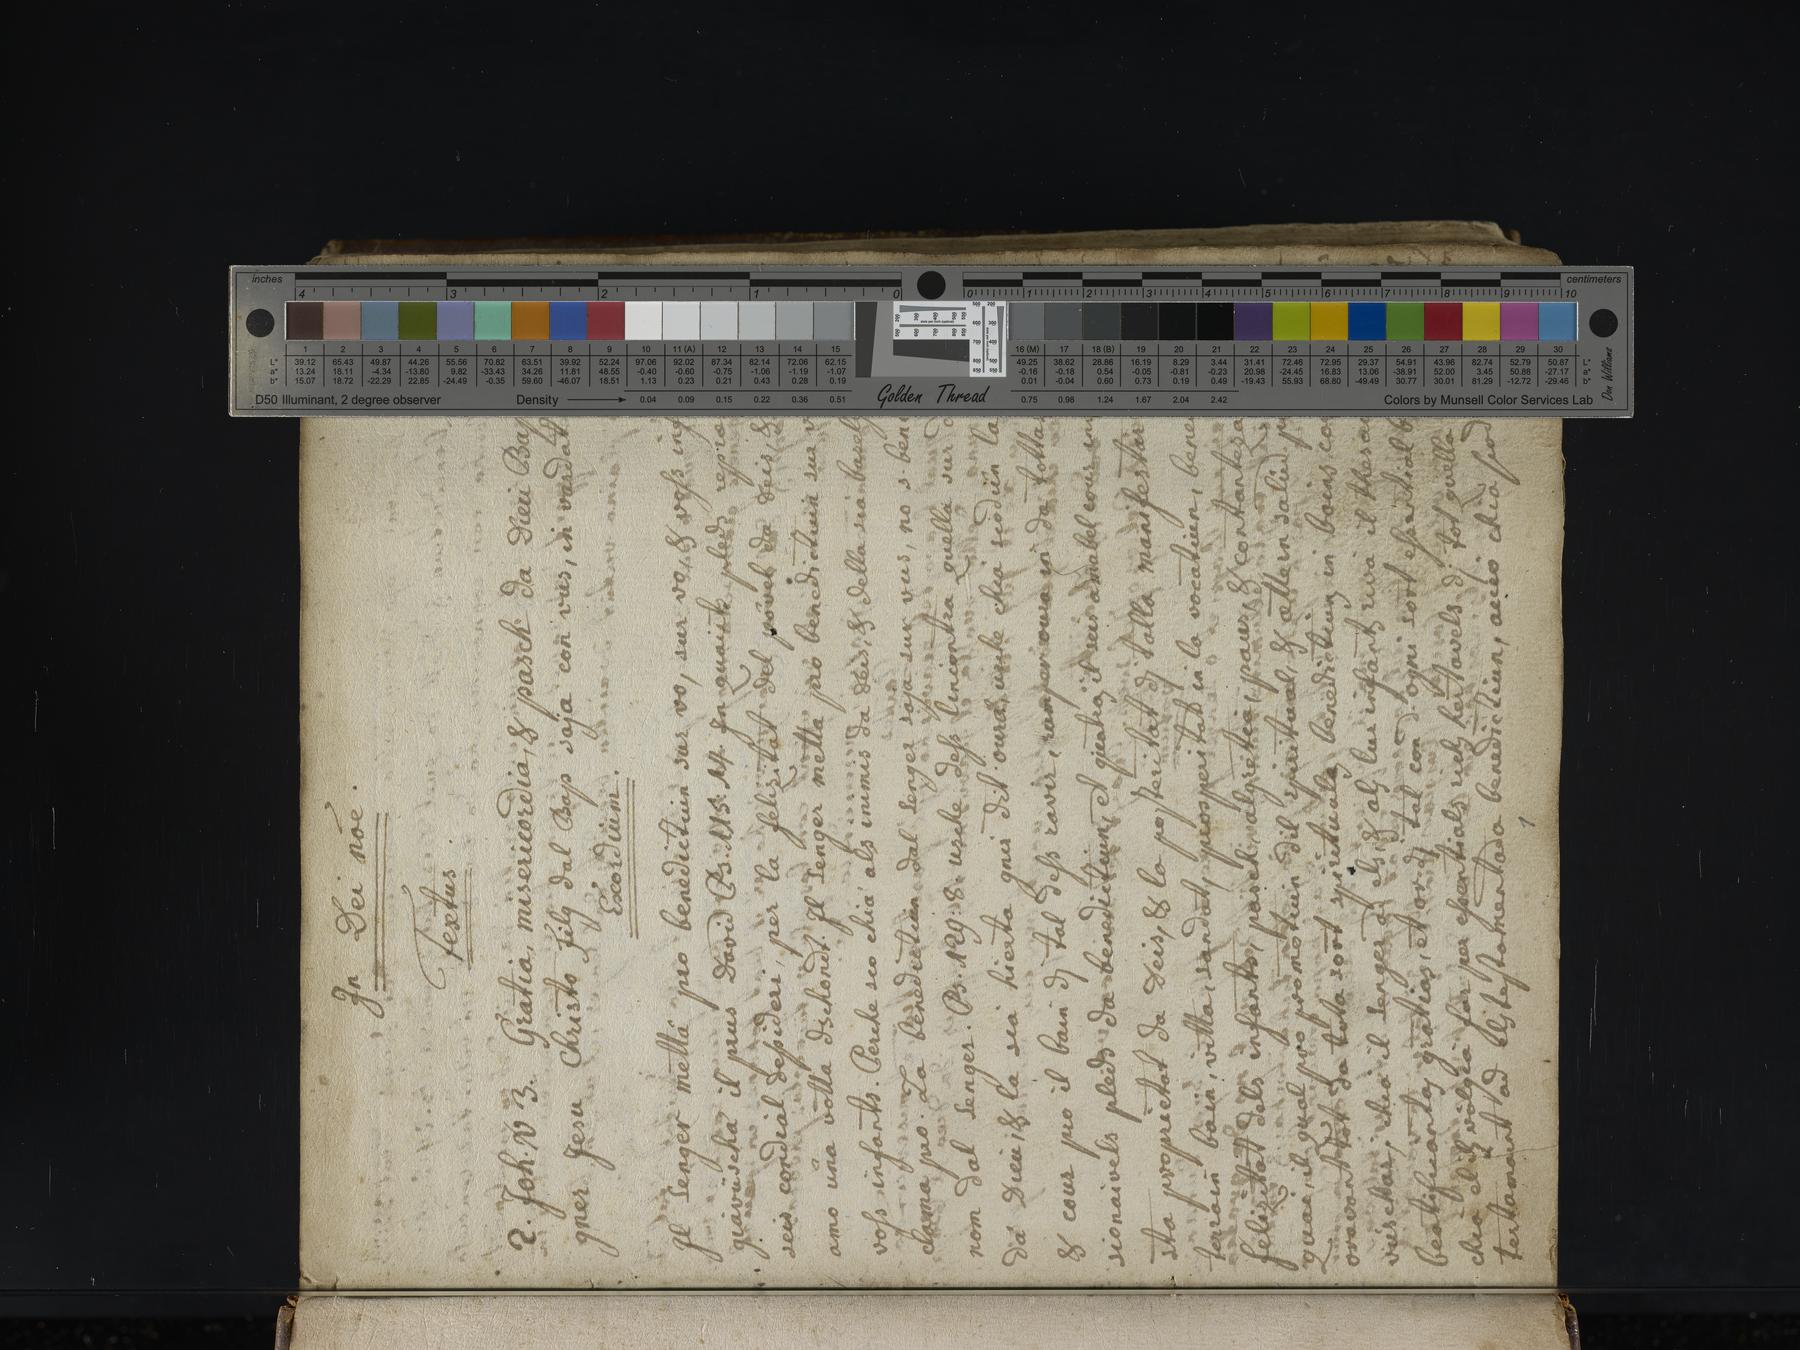 In Dei noē.
Textus.
2. Joh. v 3. Gratia, misericordia, & pasch da Dieu Bap
gner Jesu Christo filg dal Bap saja con vus, in vardat
Exordium.
Il Senger metta pro benedictiun sur vo, sur vo, & voss inf
quaivischa il prus David Ps. 115. 14. In quaists pleds
seis condial desideri, per la felizitat dal pövel da Deis &
amo üna votta dschond: Il Senger metta pro benedictiun sur v
voss infants. Perche seo chia als inimis da Deis, & della sia basel
clamma pro: La benedictiun dal Senger saja sur vus, no s-ben
nom dal Senger. Ps. 129. 8. usche dess lincontra quella sur
da Dieu, & la sia hierta gnir dit oura, usche chia s'odiin la
& cour pro il bain dj tal dess ravir, rumper oura in da tottas
sionaivels pleds da benedictiun, el giavüscha, il seis amabel cour in
sta proprietat da Deis, & la posteritat dj tolla manifestar
terrain bain, vitta, sandat, prosperitat in la vocatiun, bene
felizitat dels infants, pasch, algretia, paus, & contantezza
quai, il qual pro promotiun dil spiritual, & etter in salüd p
ovavont tot da tota sort spirituala benedictiun in bains co
vüschar, chia il Senger ad els, & als lur infants riva il thesau
beatifcants gratias, et or dj tal con d'ogni sort essential b
chia el ils völgia far per essentials rich hertavels dj tot quella
tertamaint ad els testamentada benedictiun, acciò chia pod
1
inches
centimeters
4 3 2 1 0
0 1 2 3 4 5 6 7 8 9 10
1 2 3 4 5 6 7 8 9 10 11 (A) 12 13 14 15
16 (M) 17 18 (B) 19 20 21 22 23 24 25 26 27 28 29 30
L* 39.12 65.43 49.87 44.26 55.56 70.82 63.51 39.92 52.24 97.06 92.02 87.34 82.14 72.06 62.15
a* 13.24 18.11 -4.34 -13.80 9.82 -33.43 34.26 11.81 48.55 -0.40 -0.60 -0.75 -1.06 -1.19 -1.07
b* 15.07 18.72 -22.29 22.85 -24.49 -0.35 59.60 -46.07 18.51 1.13 0.23 0.21 0.43 0.28 0.19
49.25 38.62 28.86 16.19 8.29 3.44 31.41 72.46 72.95 29.37 54.91 43.96 82.74 52.79 50.87 L*
-0.16 -0.18 0.54 -0.05 -0.81 -0.23 20.98 -24.45 16.83 13.06 -38.91 52.00 3.45 50.88 -27.17 a*
0.01 -0.04 0.60 0.73 0.19 0.49 -19.43 55.93 68.80 -49.49 30.77 30.01 81.29 -12.72 -29.46 b*
D50 Illuminant, 2 degree observer
Density 0.04 0.09 0.15 0.22 0.36 0.51
Golden Thread
0.75 0.98 1.24 1.67 2.04 2.42
Colors by Munsell Color Services Lab
Don Williams